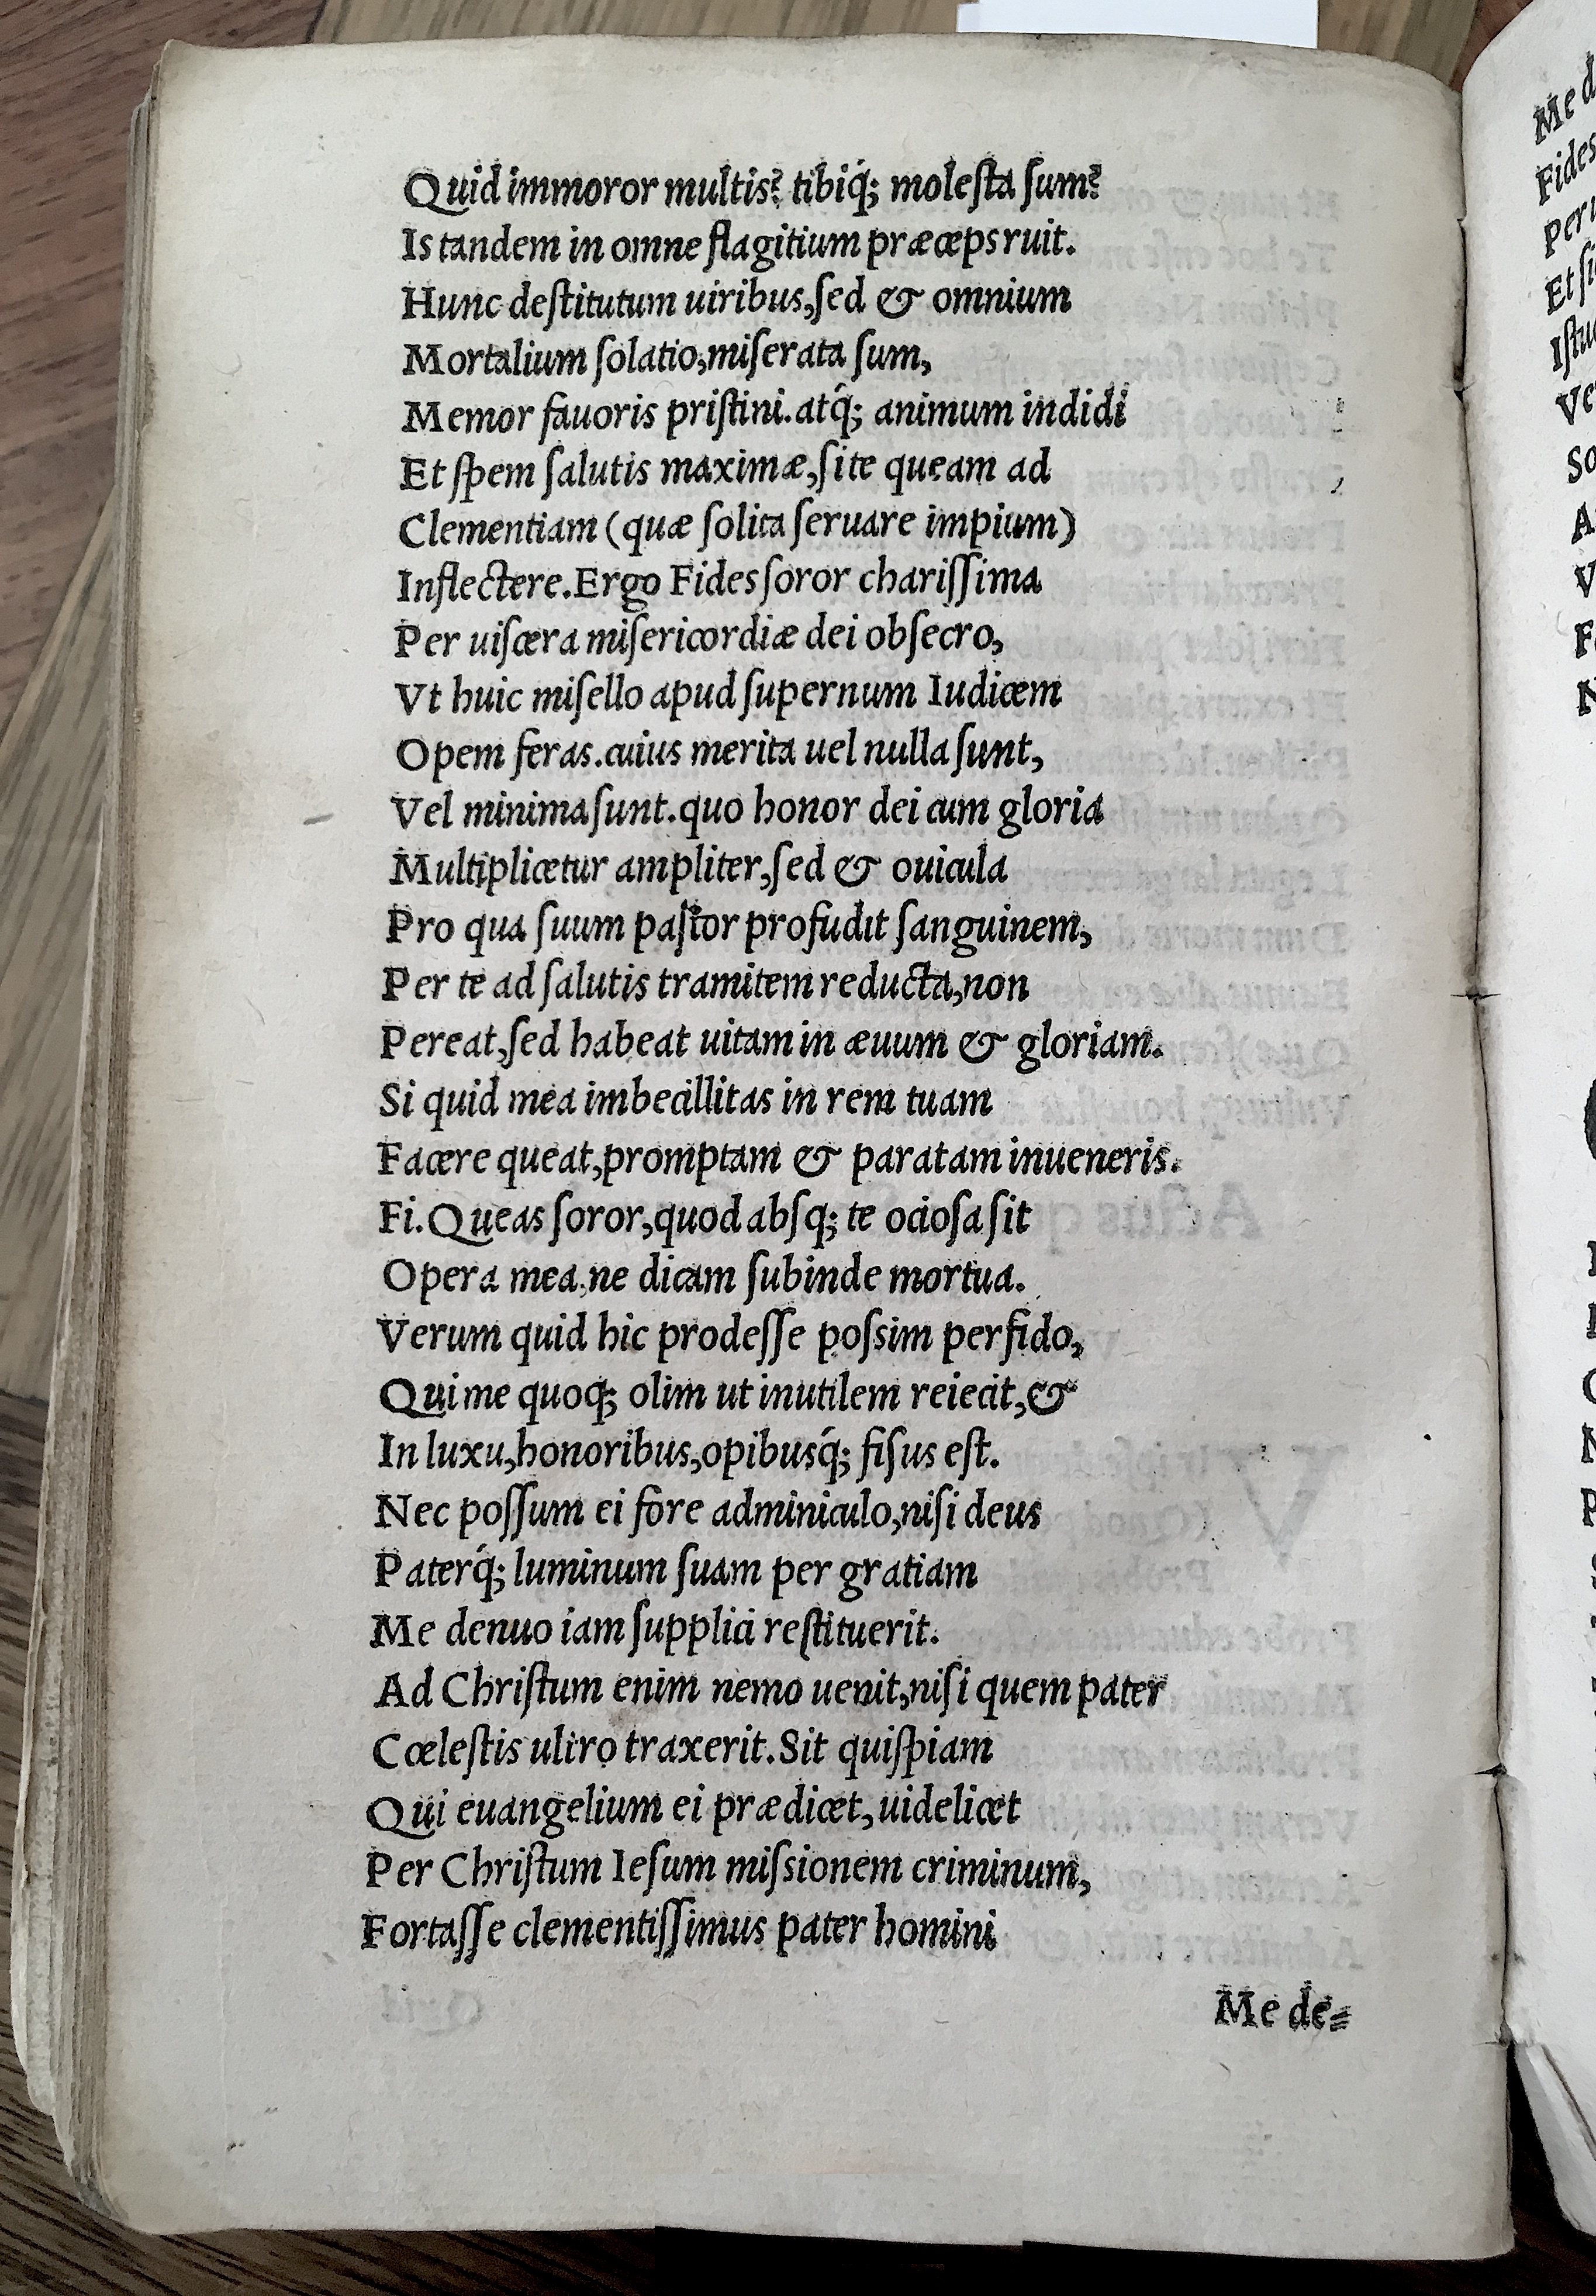 Quid immoror multis? tibiq́; molesta sum?
Is tandem in omne flagitium præceps ruit.
Hunc destitutum uiribus, sed & omnium
Mortalium solatio, miserata sum,
Memor fauoris pristini. atq́; animum indidi
Et spem salutis maximæ, si te queam ad
Clementiam (quæ solita seruare impium)
Inflectere. Ergo Fides soror charissima
Per uiscera misericordiæ dei obsecro,
Vt huic misello apud supernum Iudicem
Opem feras. cuius merita uel nulla sunt,
Vel minima sunt. quo honor dei cum gloria
Multiplicetur ampliter, sed & ouicula
Pro qua suum pastor profudit sanguinem,
Per te ad salutis tramitem reducta, non
Pereat, sed habeat uitam in æuum & gloriam.
Si quid mea imbecillitas in rem tuam
Facere queat, promptam & paratam inueneris.
Fi. Queas soror, quod absq; te ociosa sit
Opera mea, ne dicam subinde mortua.
Verum quid hic prodesse possim perfido,
Qui me quoq; olim ut inutilem reiecit, &
In luxu, honoribus, opibusq́; fisus est.
Nec possum ei fore adminiculo, nisi deus
Paterq́; luminum suam per gratiam
Me denuo iam supplici restituerit.
Ad Christum enim nemo uenit, nisi quem pater
Cœlestis ultro traxerit. Sit quispiam
Qui euangelium ei prædicet, uidelicet
Per Christum Iesum missionem criminum,
Fortasse clementissimus pater homini
Me de=
Me d
Fides
Per
Et si
Istu
Ve
So
A
V
F
N